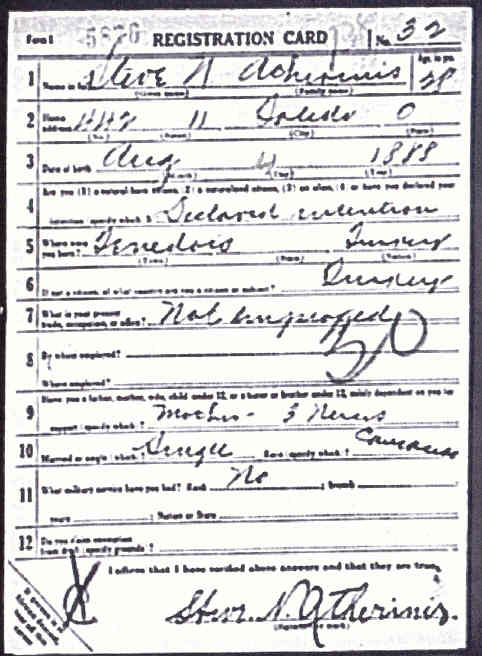 Form 1 5870 REGISTRATION CARD No. 32
1 Name in full Steve N Atherinis Age, in yrs. 28
(Given name) (Family name)
2 Home address 442 11 Toledo O
(No.) (Street) (City) (State)
3 Date of birth Aug 4 1888
(Month) (Day) (Year)
Are you (1) a natural born citizen, (2) a naturalized citizen, (3) an alien, (4) or have you declared your
4 intention (specify which)? Declared intention
5 Where were you born? Tenedois Turkey
(Town) (State) (Nation)
6 If not a citizen, of what country are you a citizen or subject? Turkey
7 What is your present trade, occupation, or office? Not employed
8 By whom employed?
Where employed?
Have you a father, mother, wife, child under 12, or a sister or brother under 12, solely dependent on you for
9 support (specify which)? Mother - 3
10 Married or single (which)? Single Race (specify which)? Caucasian
11 What military service have you had? Rank No ; branch
years ; Nation or State
12 Do you claim exemption from draft (specify grounds)?
I affirm that I have verified above answers and that they are true.
Steve N. Atherinis.
(Signature or mark)